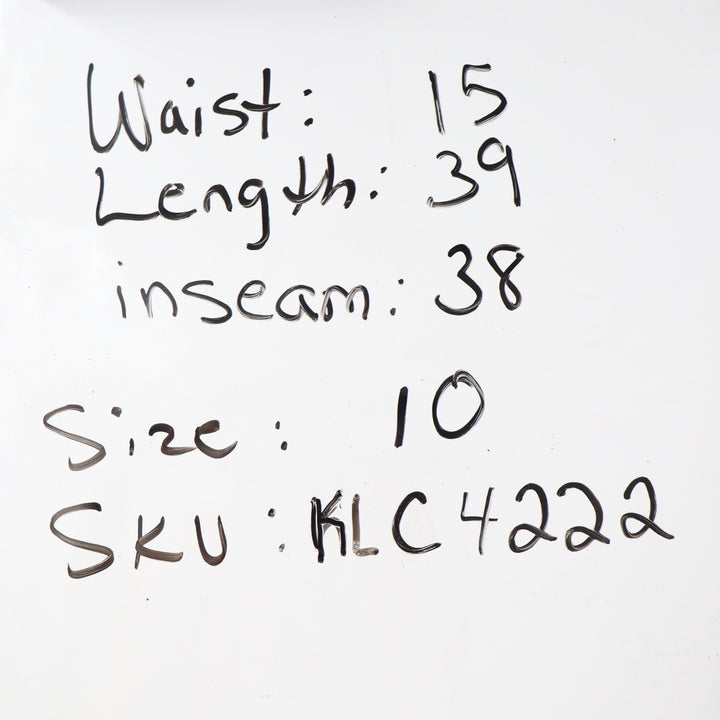 Waist: 15
Length: 39
inseam: 38
Size: 10
SKU: KLC4222